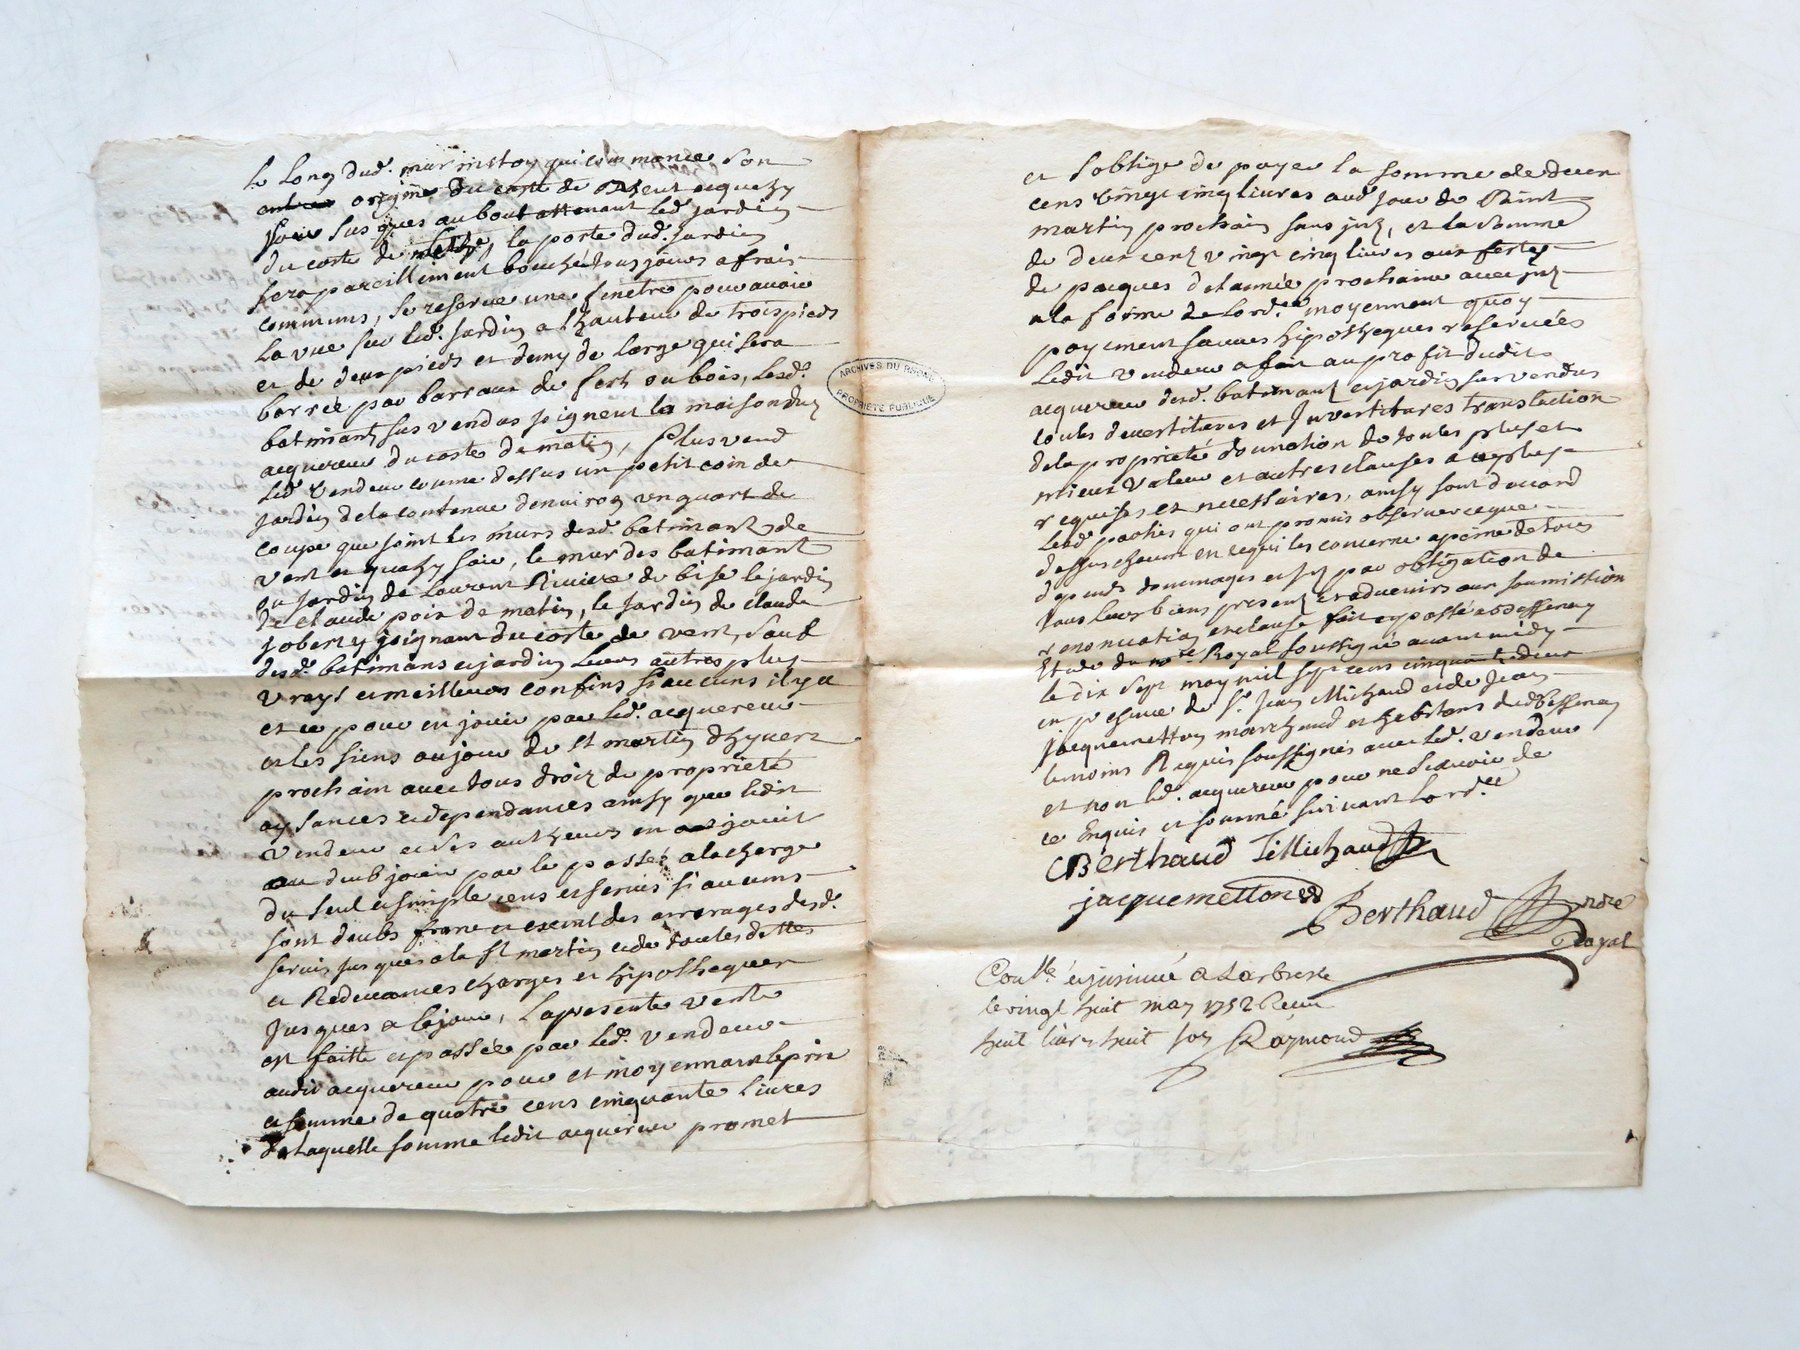 le long dud. mur mitoy qui commance son
origine du costé de vent acquezy
soir jusques au bout attenant led. jardin
du costé de la porte dud. jardin
sera pareillement bouchée tous jours a frais
communs, se reserve une fenetre pour avoir
la vue sur led. jardin a l'hauteur de trois pieds
et de deux pieds et demy de large qui sera
barrée par barraux de fert ou bois, lesd.
batimants sus vendus joignent la maison dud
acquereur du costé de matin, Plus vend
led. vendeur comme dessus un petit coin de
jardin de la contenue denviron un quart de
coupe que joint les murs desd. batimants de
vent et quazy soir, le mur des batimant
ou jardin de Laurent Riviere de bise le jardin
de claude poix de matin, le jardin de claude
joberty joignant du costé de vent, sauf
desd. batimans et jardin leurs autres plus
vrays et meilleurs confins si aucuns il y a
et ce pour en jouir par led. acquereur
et les siens au jour de st martin dhyvert
prochain avec tous droiz de proprieté
aysances et dependances ainsy que ledit
vendeur et ses autheurs en ont jouit
ou deub jouir par le passé, a la charge
du seul et simple cens et servis si aucuns
sont deubs franc et exemt des arrerages desd.
servis jusques a la st martin et de toutes dettes
et Redevances charges et hipotheques
jusques a ce jour, la presente vente
est faitte et passée par led. vendeur
audit acquereur pour et moyennant le prix
et somme de quatre cens cinquante livres
de laquelle somme ledit acquereur promet
ARCHIVES DU RHONE
PROPRIETE PUBLIQUE
et soblige de payer la somme de deux
cens vingt cinq livres aud. jour de Saint
martin prochain sans jnz, et la somme
de deux cens vingt cinq livres aux festes
de pacques de lannée prochaine avec jnz
a la forme de Lord.ce moyennant quoy
payement sauves hipotheques reservées
ledit vendeur a fait au profit dudit
acquereur desd. batimant et jardin sus vendus
toutes devestitures et Investitures translation
de la proprieté donnation de toutes plus et
mieux valeur et autres clauses a ce
requises et necessaires, ainsy sont daccord
lesd. parties qui ont promis observer ce que
dessus chacun en ce qui les concerne a peine de tous
depends dommages et jnz par obligation de
tous leurs biens presents et advenirs aux soumission
renonciation et clause fait et passé a Bessenay
Etude du no.re Royal soussigné avant midy
le dix sept may mil sept cens cinquante deux
en presence de S.r Jean Michaud et de Jean
Jacquemetton marchand et habitans dud. Bessenay
temoins Requis soussignés avec led. vendeur
et non led. acquereur pour ne scavoir de
ce Enquis et sommé suivant Lord.ce
Berthaud J Michaud
jacquemetton
Berthaud no.re
Royal
Con.lé et jnsinué a Larbresle
le vingt huit may 1752 Recu
huit livres huit sos Raymond